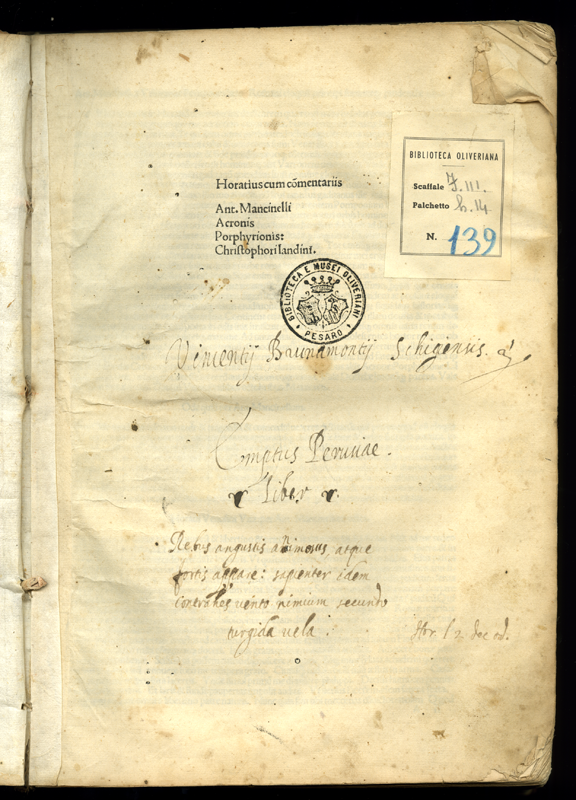 Horatius cum cōmentariis
Ant. Mancinelli
Acronis
Porphyrionis:
Christophori landini.
BIBLIOTECA OLIVERIANA
Scaffale J. III.
Palchetto h. 14
N. 139
BIBLIOTECA E MUSEI OLIVERIANI
PESARO
Vincentij Schigensis.
Emptus Perusiae.
Liber
Rebus angustis animosus, atque
fortis appare: sapienter idem
contrahes vento nimium secundo
turgida vela.
Hor. l. 2.